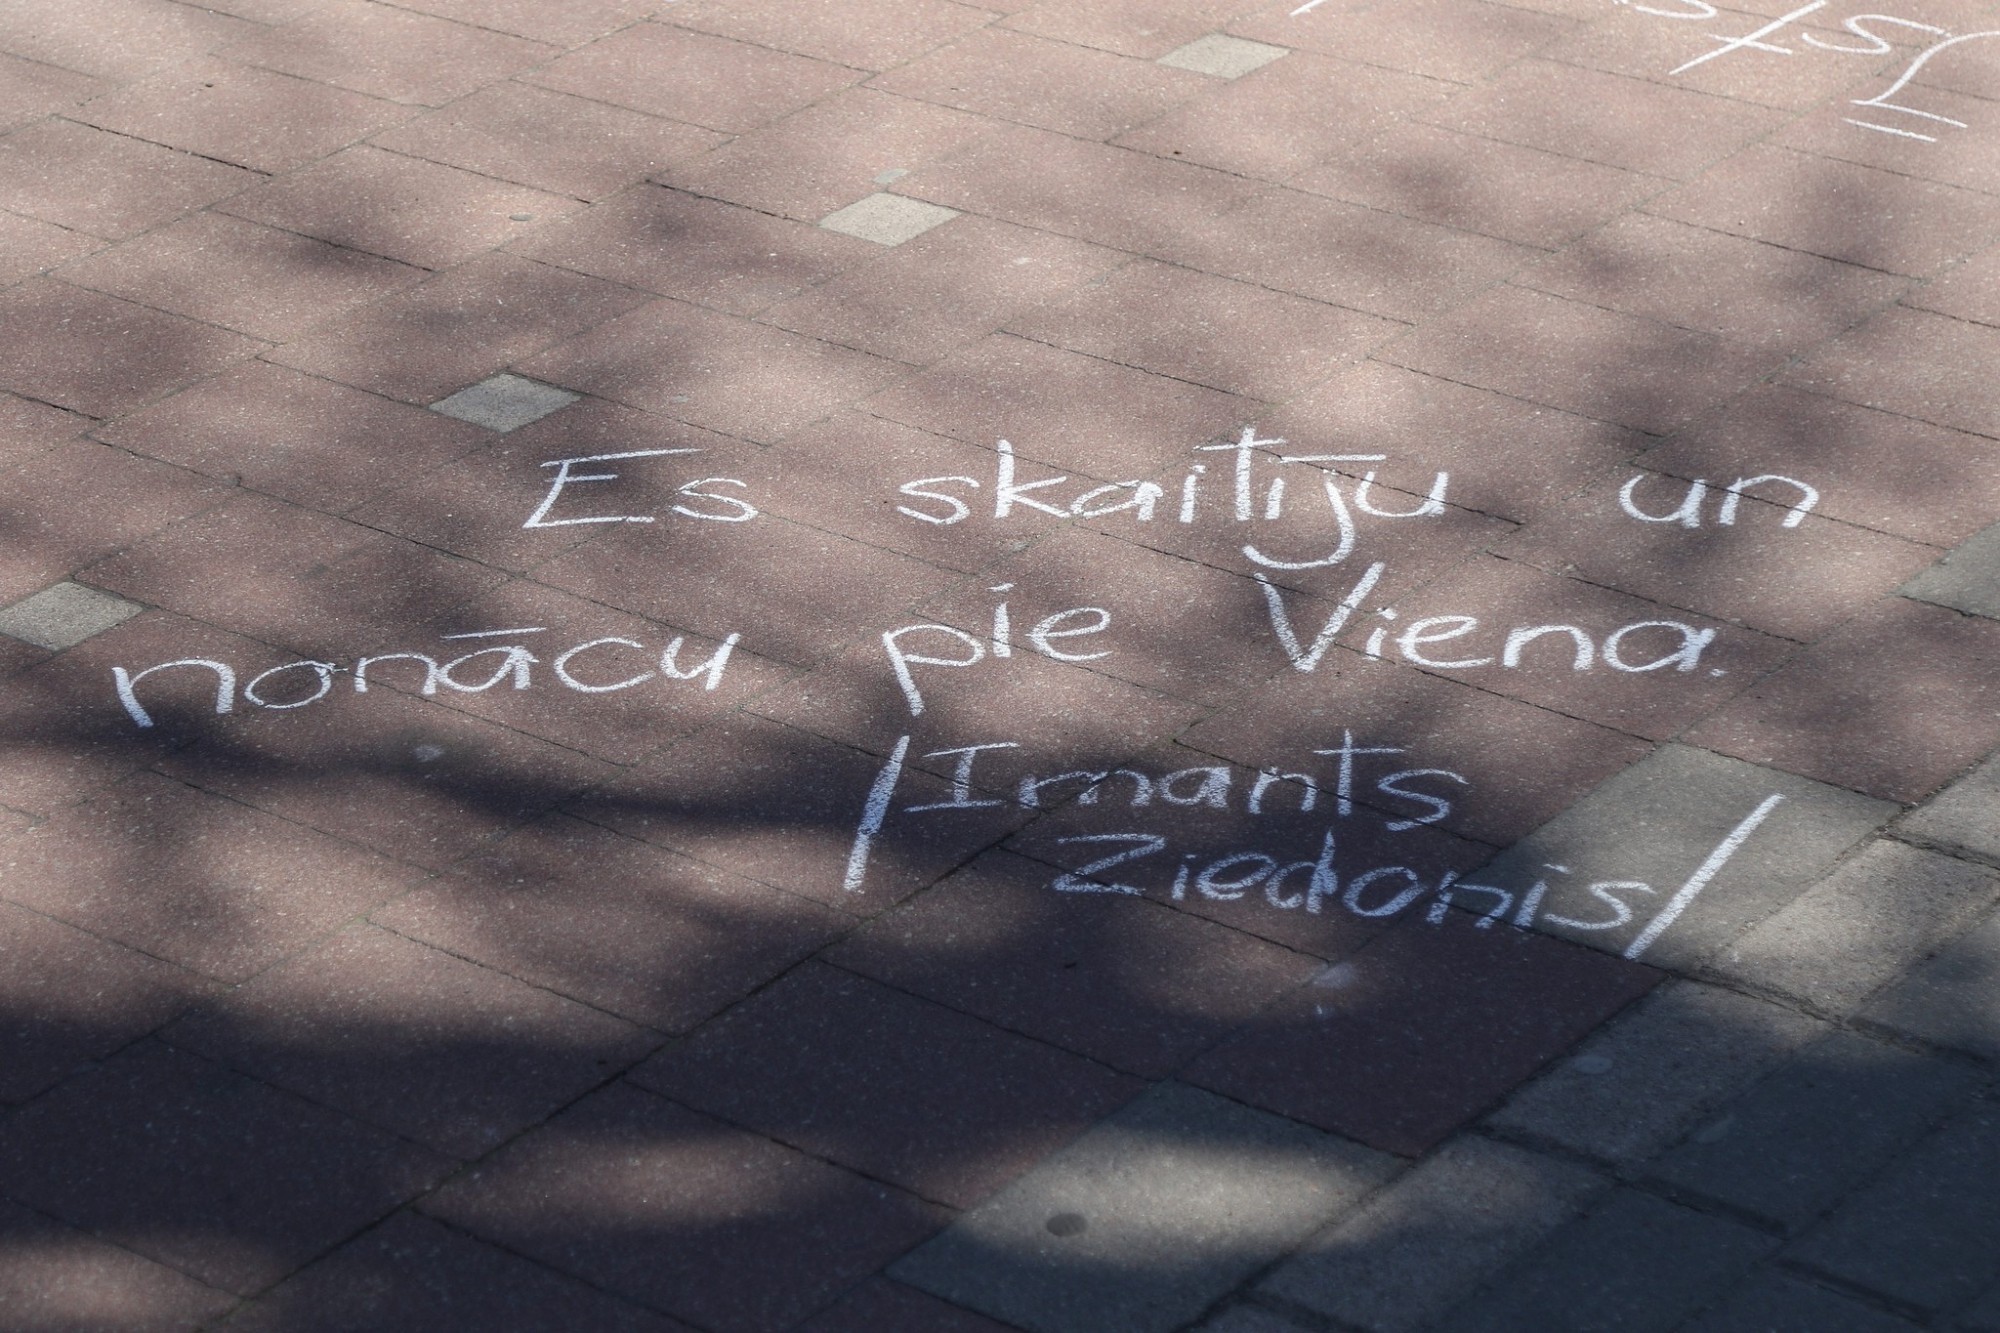 Es skaitīju un
nonācu pie Viena.
/Imants
Ziedonis/